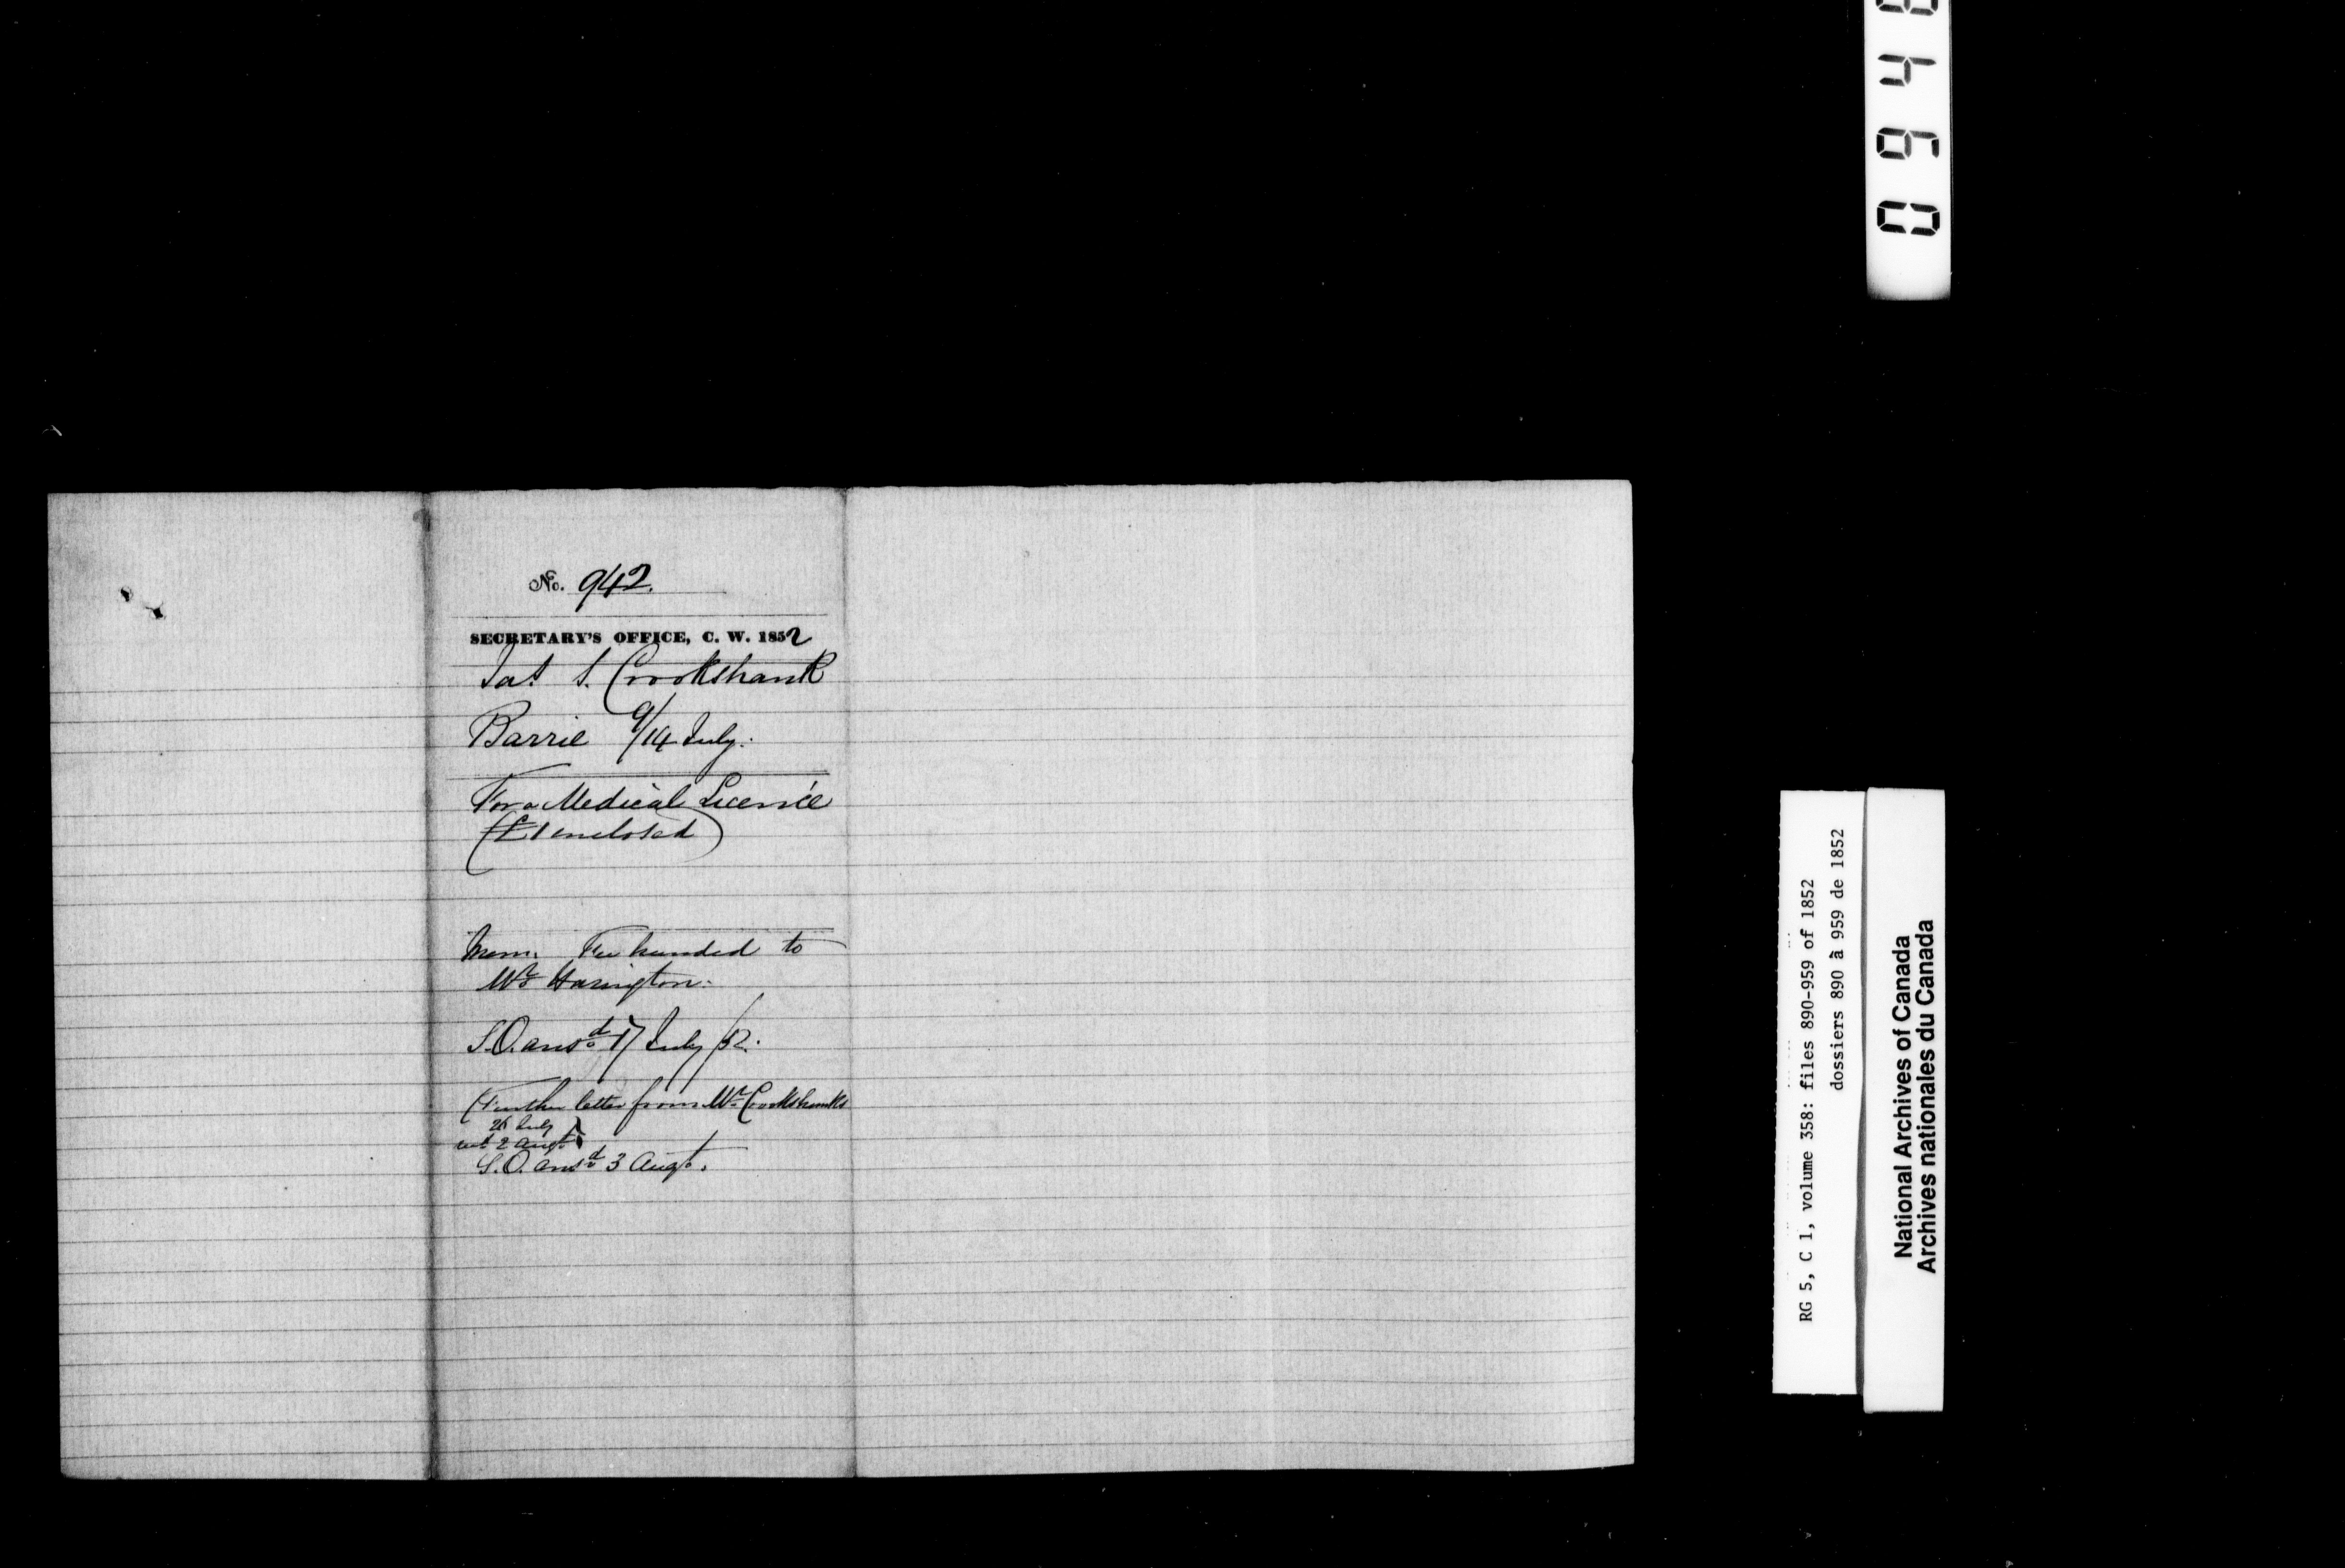 No. 942.
SECRETARY'S OFFICE, C. W. 1852
Jas S. Crookshank
Barrie 9/14 July.
For a Medical Licence
(£1 enclosed)
Mem. Fee handed to
Mr Harington.
S.O. ansd 17 July /52.
(Further letter from Mr Crookshanks
26 July
recd 2 Augt)
S.O. ansd 3 Augt.
RG 5, C 1, volume 358: files 890-959 of 1852
dossiers 890 à 959 de 1852
National Archives of Canada
Archives nationales du Canada
0 9 4 8